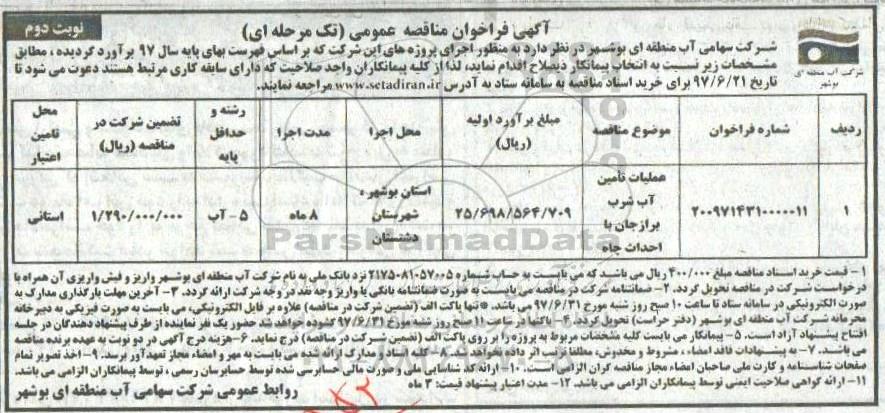 آگهی فراخوان مناقصه عمومی (تک مرحله ای)
نوبت دوم
شرکت آب منطقه ای
بوشهر
شرکت سهامی آب منطقه ای بوشهر در نظر دارد به منظور اجرای پروژه های این شرکت که بر اساس فهرست بهای پایه سال ۹۷ برآورد گردیده، مطابق
مشخصات زیر نسبت به انتخاب پیمانکار ذیصلاح اقدام نماید، لذا از کلیه پیمانکاران واجد صلاحیت که دارای سابقه کاری مرتبط هستند دعوت می شود تا
تاریخ ۹۷/۶/۲۱ برای خرید اسناد مناقصه به سامانه ستاد به آدرس www.setadiran.ir مراجعه نمایند.
ردیف
شماره فراخوان
موضوع مناقصه
مبلغ برآورد اولیه
(ریال)
محل اجرا
مدت اجرا
رشته و
حداقل
پایه
تضمین شرکت در
مناقصه (ریال)
محل
تامین
اعتبار
۱
۲۰۰۹۷۱۴۳۱۰۰۰۰۰۱۱
عملیات تأمین
آب شرب
برازجان با
احداث چاه
۲۵/۶۹۸/۵۶۴/۷۰۹
استان بوشهر،
شهرستان
دشتستان
۸ ماه
۵-آب
۱/۲۹۰/۰۰۰/۰۰۰
استانی
ParsNamadData
۱- قیمت خرید اسناد مناقصه مبلغ ۴۰۰/۰۰۰ ریال می باشد که می بایست به حساب شماره ۲۱۷۵۰۸۱۰۵۷۰۰۵ نزد بانک ملی به نام شرکت آب منطقه ای بوشهر واریز و فیش واریزی آن همراه با
درخواست شرکت در مناقصه تحویل گردد. ۲- ضمانتنامه شرکت در مناقصه می بایست به صورت ضمانتنامه بانکی یا واریز وجه نقد در وجه شرکت ارائه گردد. ۳- آخرین مهلت بارگذاری مدارک به
صورت الکترونیکی در سامانه ستاد تا ساعت ۱۰ صبح روز شنبه مورخ ۹۷/۶/۳۱ می باشد. *تنها پاکت الف (تضمین شرکت در مناقصه) علاوه بر فایل الکترونیکی، می بایست به صورت فیزیکی به دبیرخانه
محرمانه شرکت آب منطقه ای بوشهر (دفتر حراست) تحویل گردد. ۴- پاکتها در ساعت ۱۱ صبح روز شنبه مورخ ۹۷/۶/۳۱ گشوده خواهد شد حضور یک نفر نماینده از طرف پیشنهاد دهندگان در جلسه
افتتاح پیشنهاد آزاد است. ۵- پیمانکار می بایست کلیه مشخصات مربوط به پروژه را بر روی پاکت الف (تضمین شرکت در مناقصه) درج نماید. ۶- هزینه درج آگهی در دو نوبت به عهده برنده مناقصه
می باشد. ۷- به پیشنهادات فاقد امضاء، مشروط و مخدوش، مطلقا ترتیب اثر داده نخواهد شد. ۸- کلیه اسناد و مدارک ارائه شده می بایست به مهر و امضاء مجاز تعهدآور برسد. ۹- اخذ تصویر تمام
صفحات شناسنامه و کارت ملی صاحبان امضاء مجاز مناقصه گران الزامی است. ۱۰- ارائه کد شناسایی ملی و صورت مالی حسابرسی شده توسط حسابرسان رسمی، توسط پیمانکاران الزامی می باشد.
۱۱- ارائه گواهی صلاحیت ایمنی توسط پیمانکاران الزامی می باشد. ۱۲- مدت اعتبار پیشنهاد قیمت: ۳ ماه
روابط عمومی شرکت سهامی آب منطقه ای بوشهر